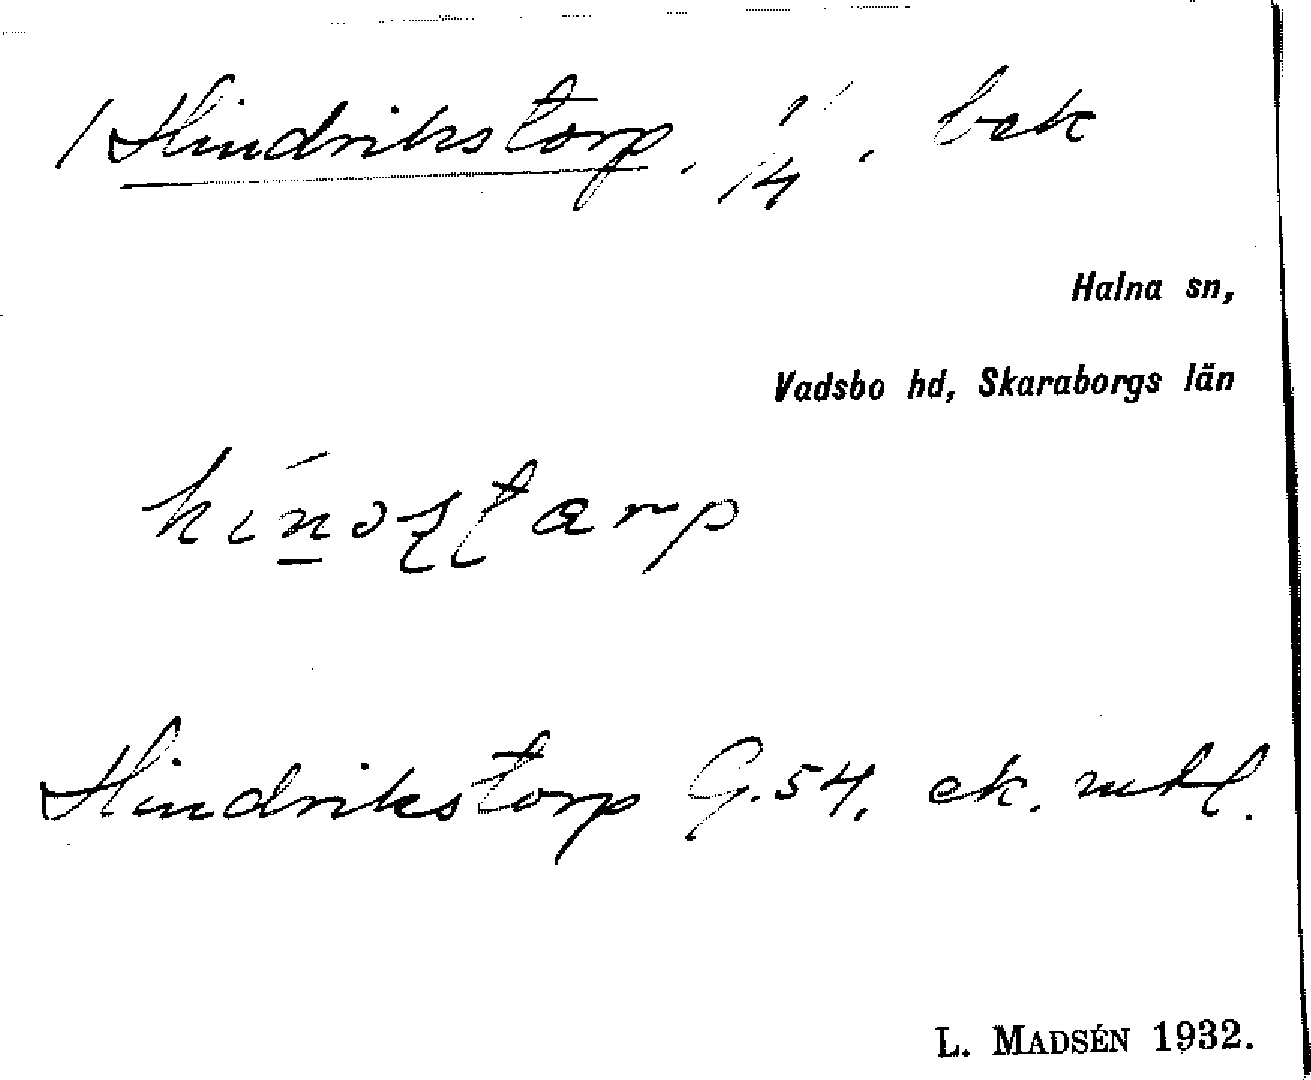 / Hindrikstorp, 1/4, bek
Halna sn,
Vadsbo hd, Skaraborgs län
Hindrikstorp G. 54. ek. mtl.
L. MADSÉN 1932.